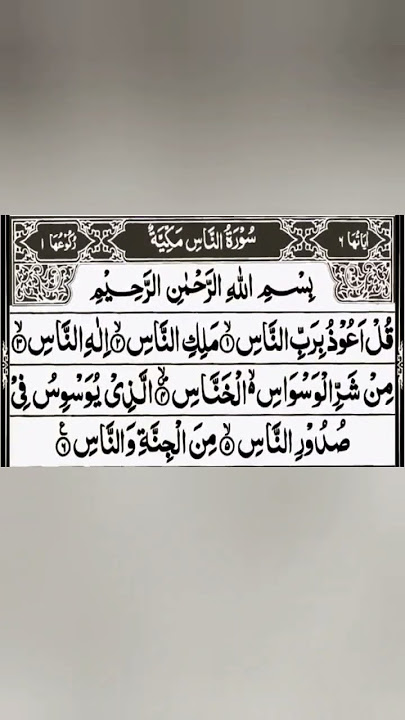 اٰيَاتُهَا ٦ سُوْرَةُ النَّاسِ مَكِّيَّةٌ رُكُوْعُهَا ١
بِسْمِ اللّٰهِ الرَّحْمٰنِ الرَّحِيْمِ
قُلْ اَعُوْذُ بِرَبِّ النَّاسِ ۙ﴿١﴾ مَلِكِ النَّاسِ ۙ﴿٢﴾ اِلٰهِ النَّاسِ ۙ﴿٣﴾
مِنْ شَرِّ الْوَسْوَاسِ ۙ۬ الْخَنَّاسِ ۙ﴿٤﴾ الَّذِیْ یُوَسْوِسُ فِیْ
صُدُوْرِ النَّاسِ ۙ﴿٥﴾ مِنَ الْجِنَّةِ وَ النَّاسِ ﴿٦﴾ ع